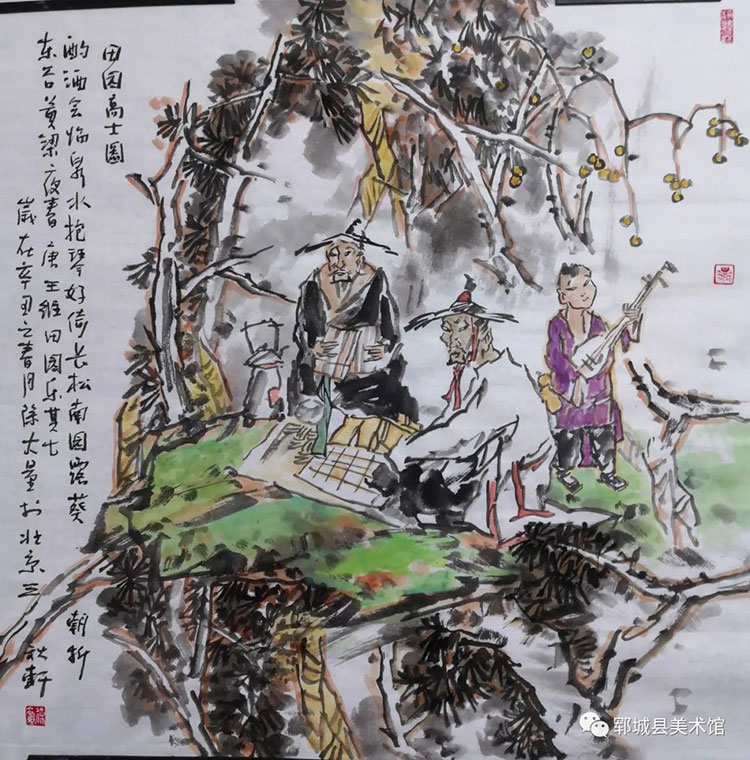 田园高士圖
酌酒会临泉水抱琴好倚长松南园露葵
朝折
东谷黄梁夜舂唐王维田园乐其七
歲在辛丑之春月陈大量於北京三
秋軒
郓城县美术馆